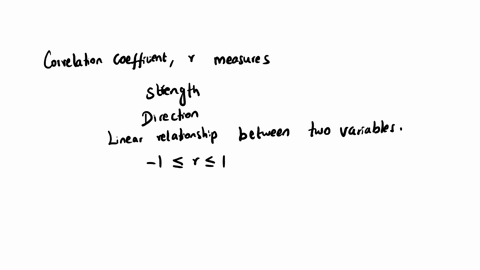 Correlation coefficient, r measures
Strength
Direction
Linear relationship between two variables.
-1 ≤ r ≤ 1